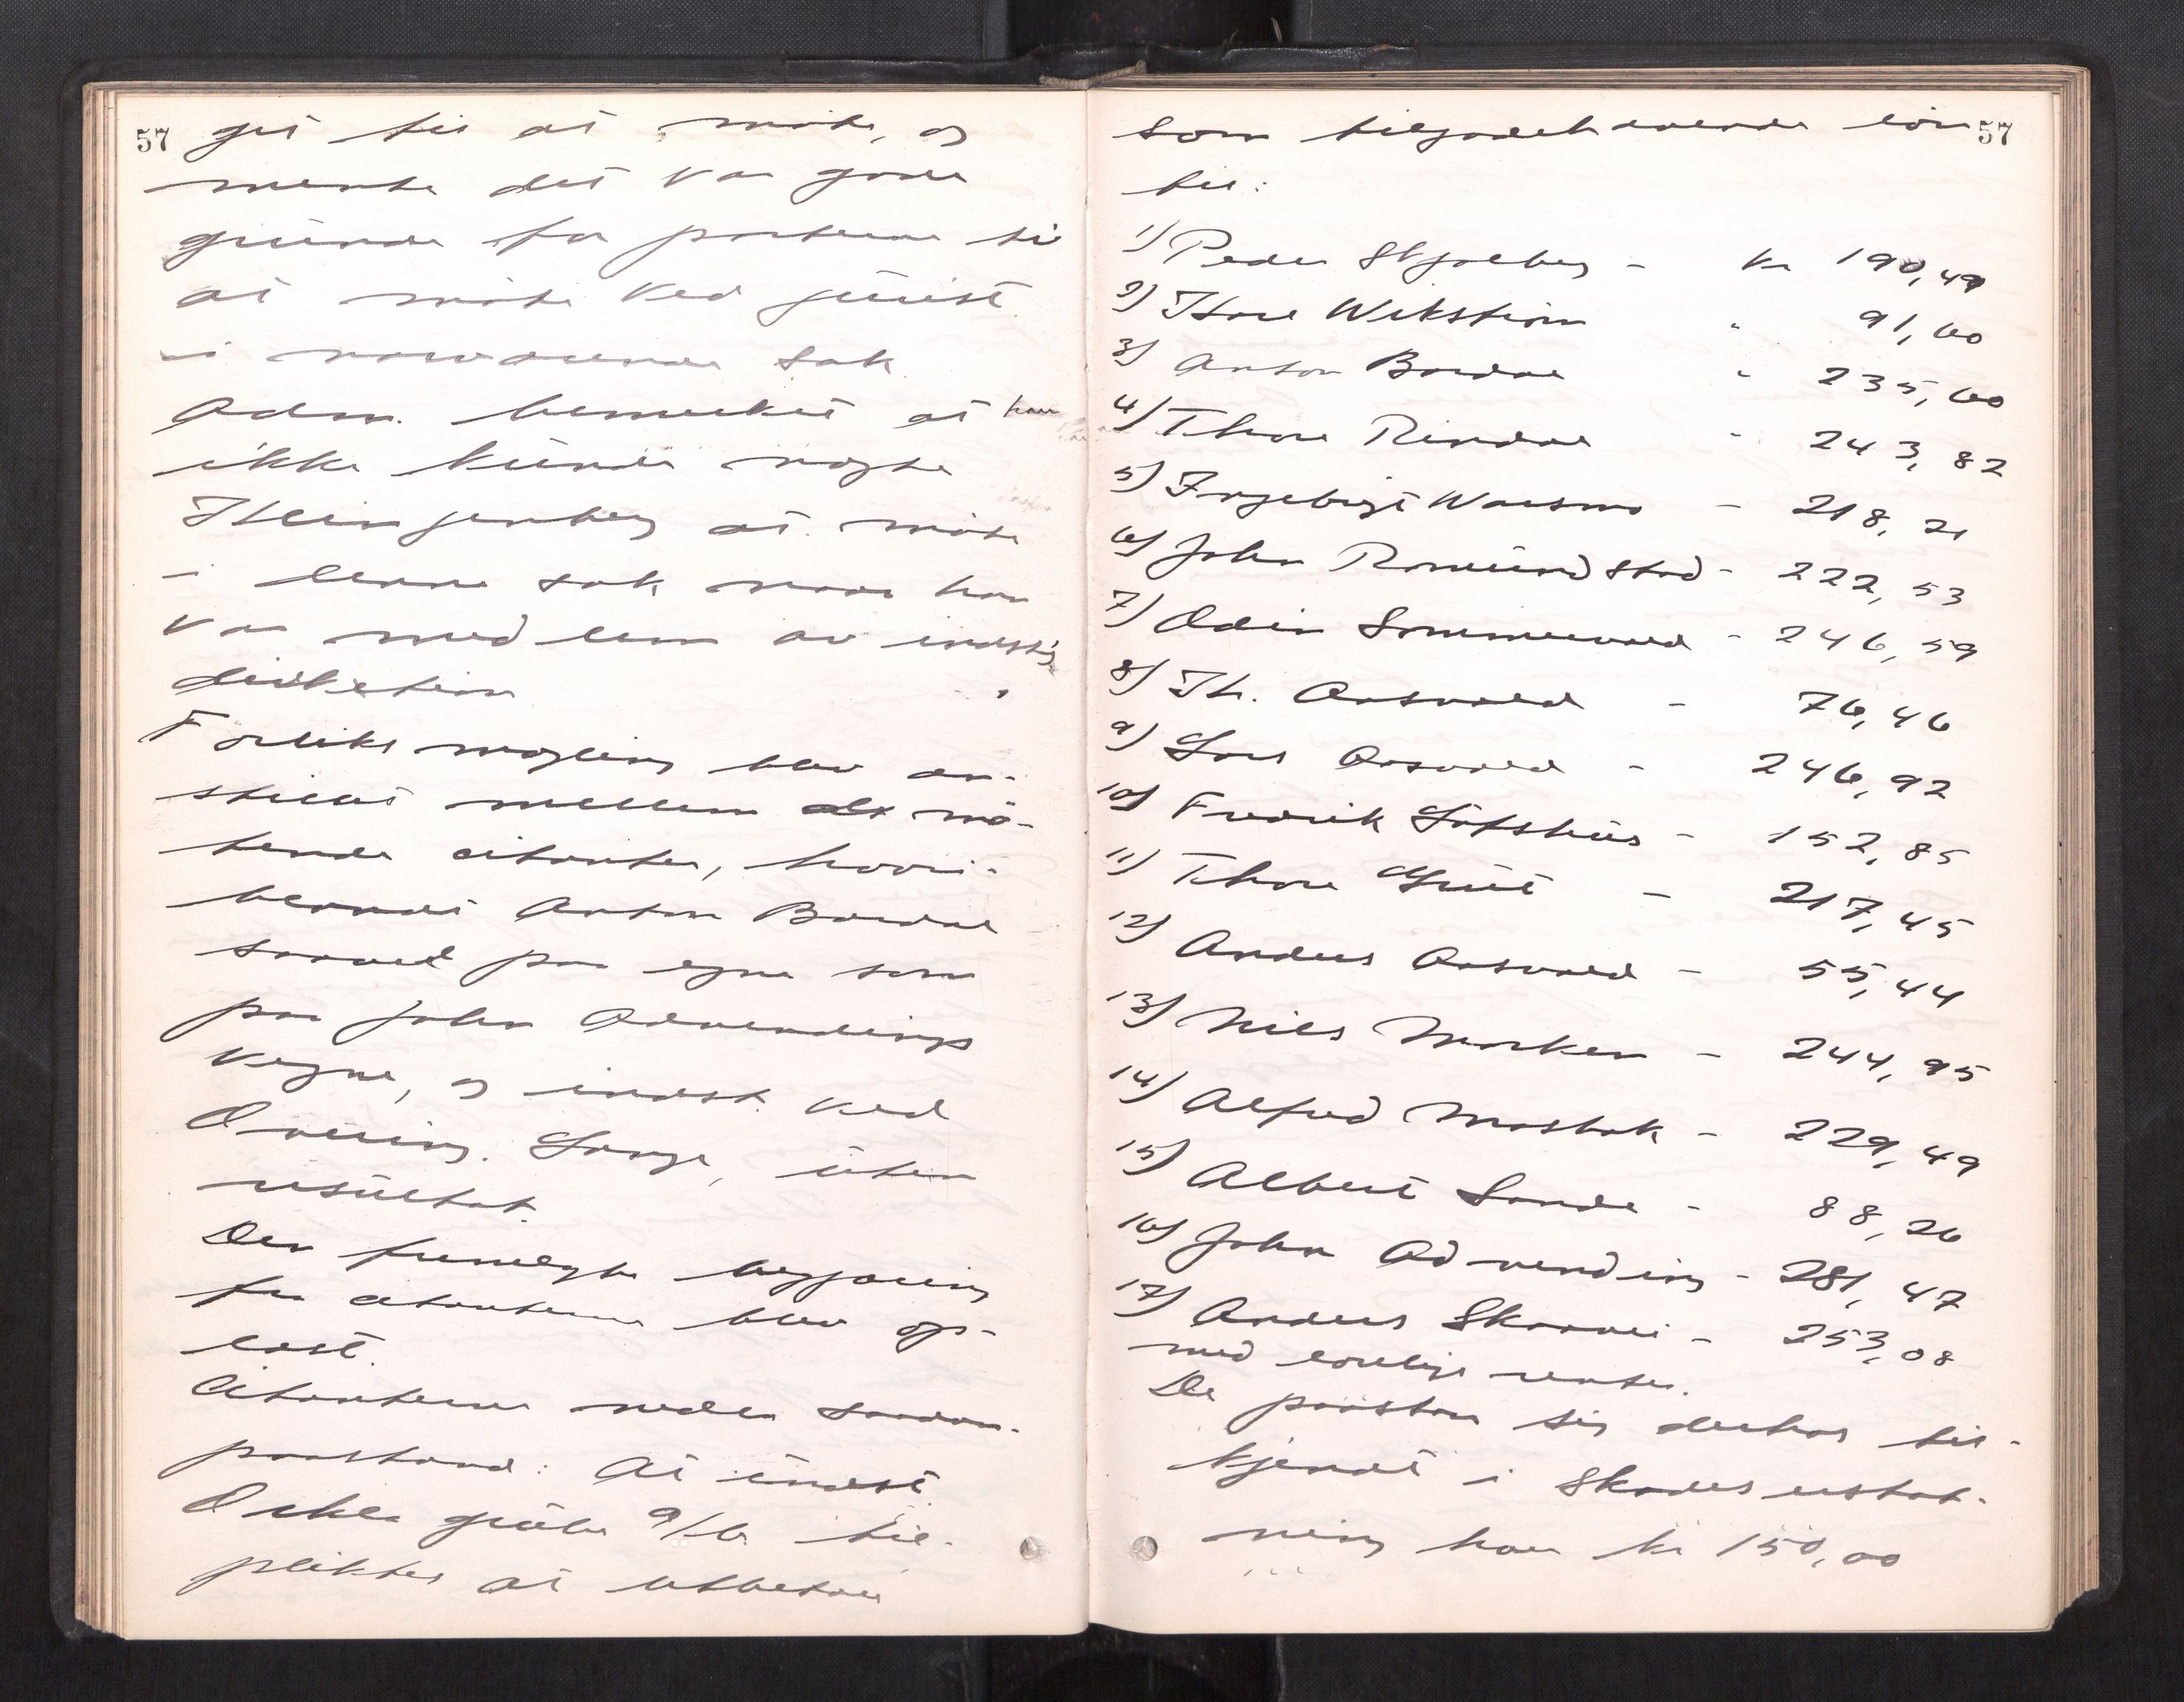 57
git til at möte, og
mente det var gode
grunde for parterne til
at möte ved jurist
i nærværende sak.
Adm. bemerket at han
ikke kunde negte
Klingenberg at möte
i denne sak naar han
var medlem av indst.s
direktion.
Forliksmægling blev an-
stillet mellem de mö-
tende citanter, hvori-
blandt Anton Bordal
saavel paa egne som
paa John Advendings
vegne, og indst. ved
Overing. Lange, uten
resultat.
Den fremlagte begjæring
fra citanterne blev op-
læst.
Citanterne nedla saadan
paastand: At indst.
Orkla Grube A/B til-
pliktes at utbetale
57
som tilgodehavende lön
til:
1) Peder Skjølberg - kr 190,49
2) Hans Wikström " 91,60
3) Anton Bordal " 235,60
4) Thore Rindal " 243,82
5) Ingebrigt Waslmo - 218,21
6) John Romundstad - 222,53
7) Odin Sommervold - 246,59
8) Th. Aasvold - 76,46
9) Lars Aasvold - 246,92
10) Fredrik Löfshus - 152,85
11) Thore - 217,45
12) Anders Aasvold - 55,44
13) Nils Morken - 244,95
14) Alfred Mosbak - 229,49
15) Albert Sande - 88,26
16) John Advending - 281,47
17) Anders Skaarvei - 253,08
med lovlige renter.
De paastaar sig derhos til-
kjendt i skadeserstat-
ning hver kr 150,00